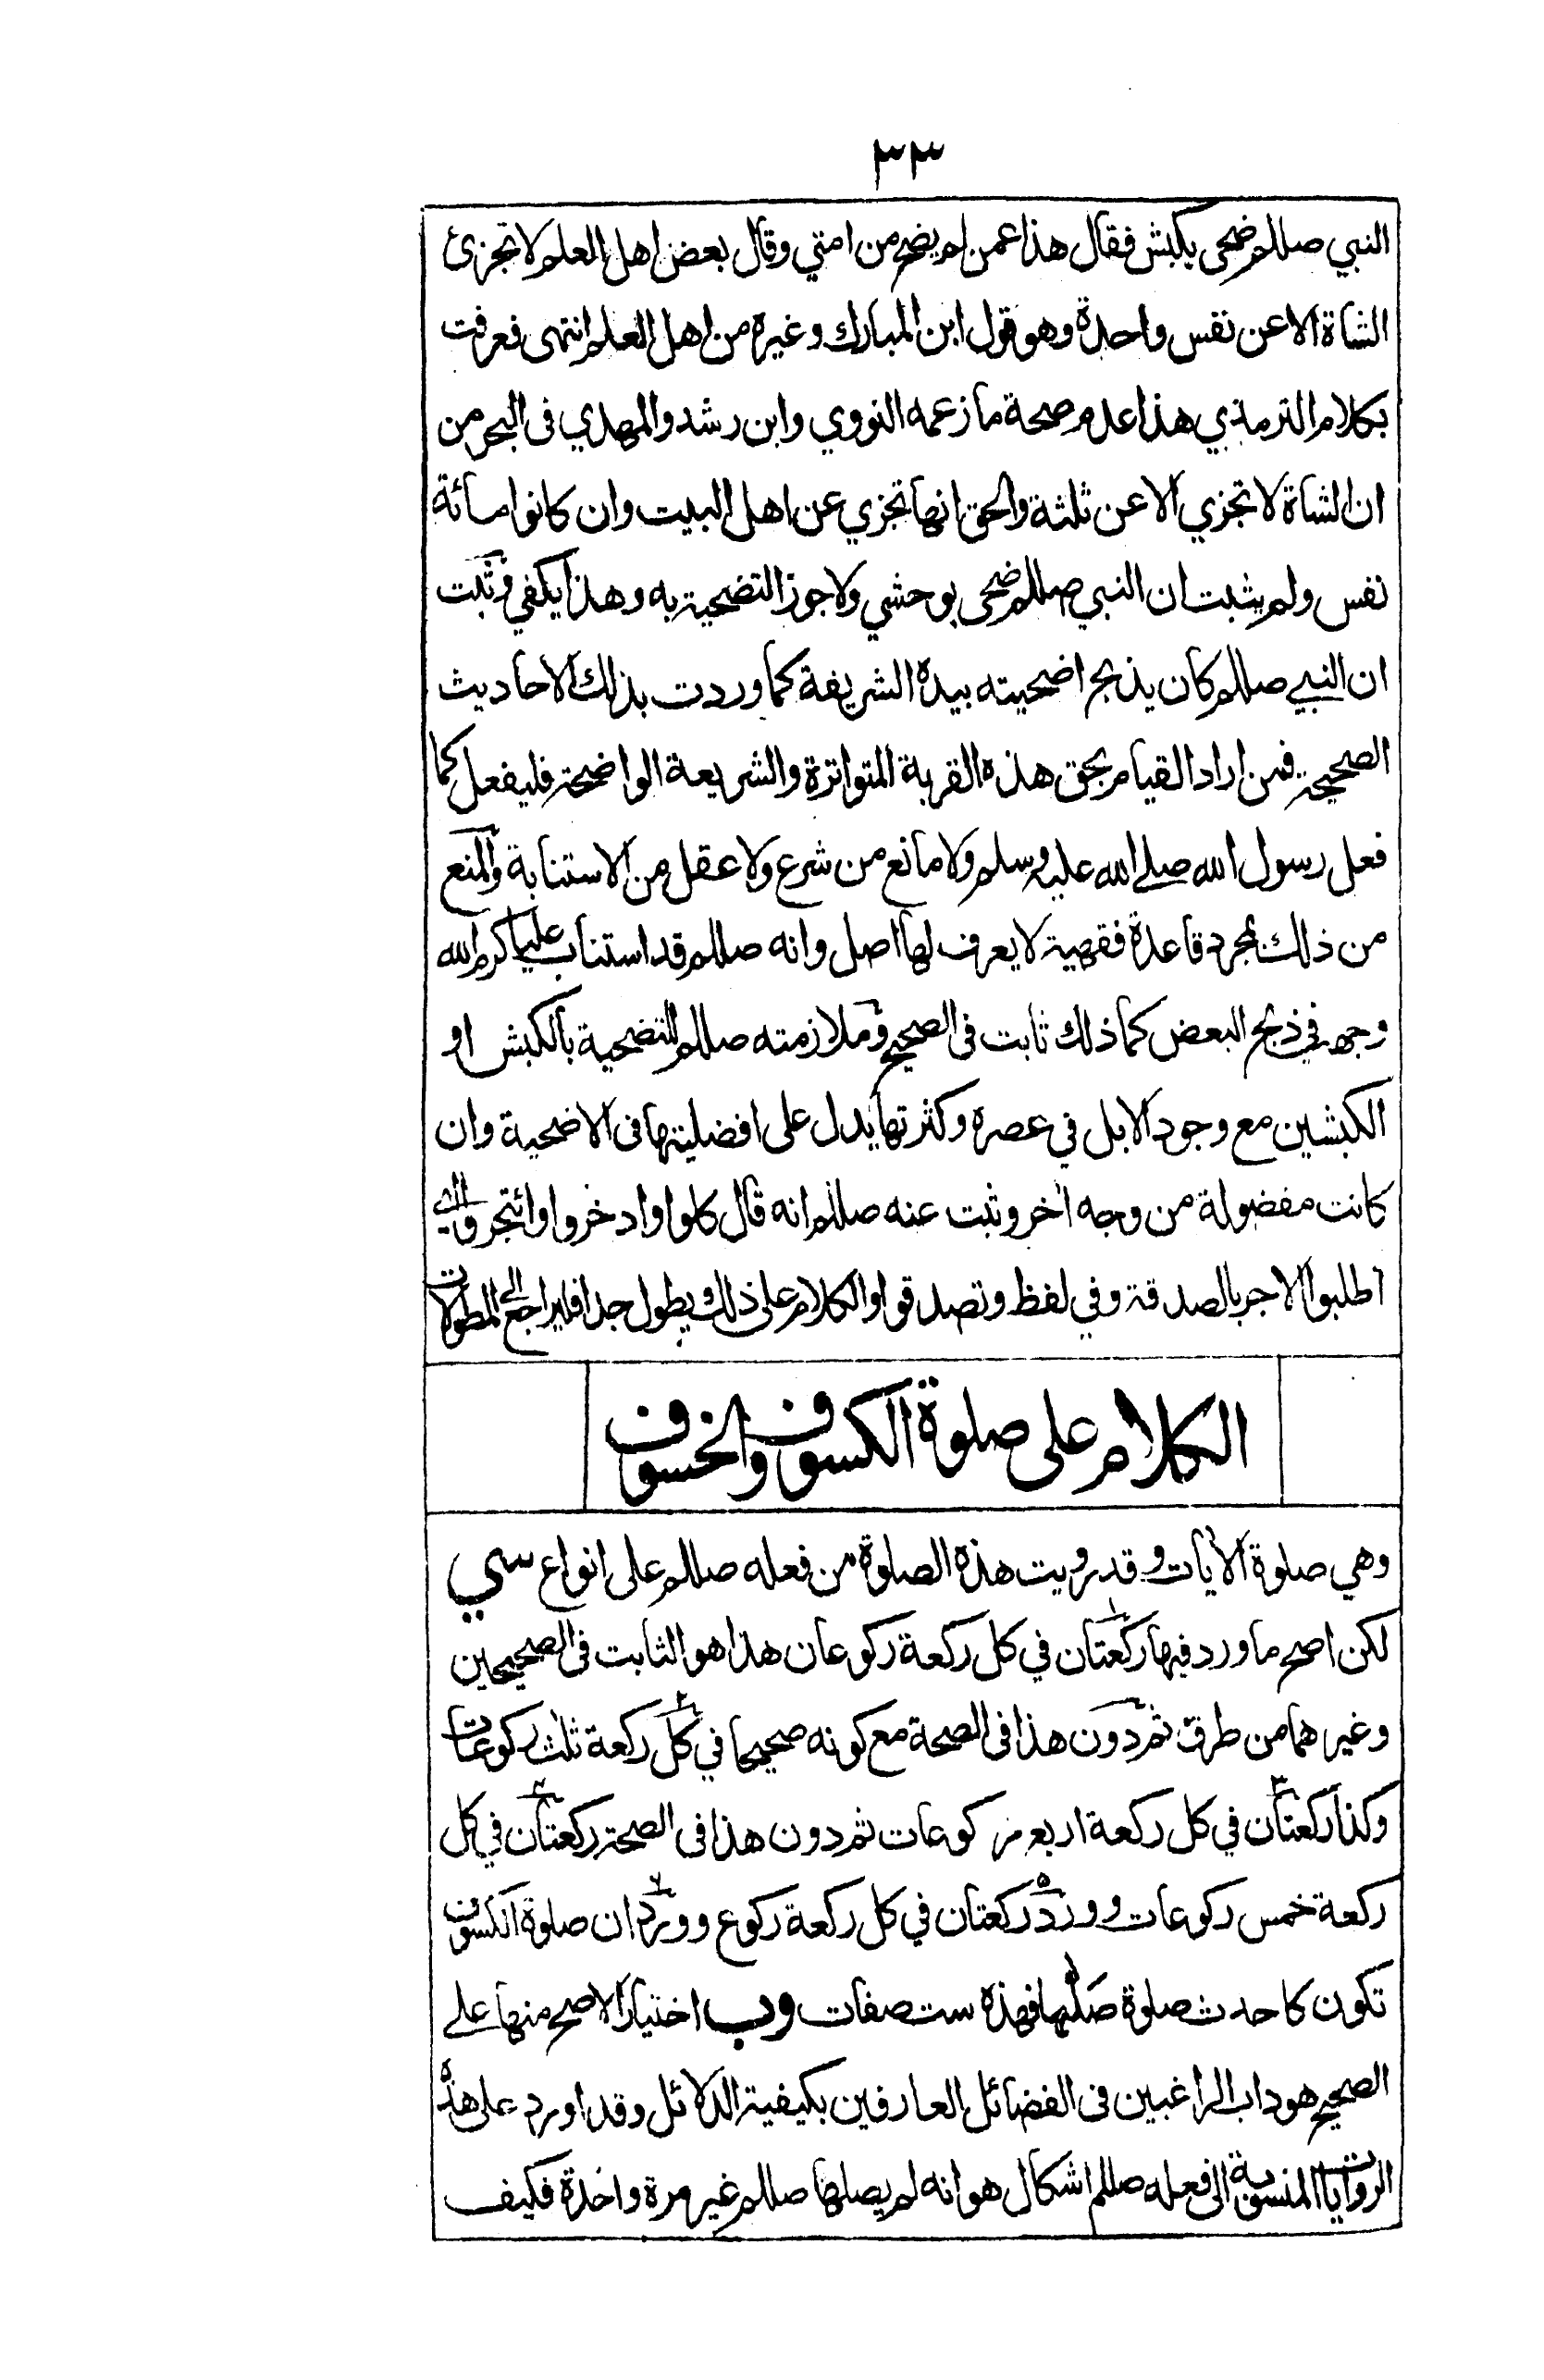 ٣٣
النبي صللم ضحى بكبش فقال هذا عمن لم يضح من امتي وقال بعض اهل العلم لا تجزئ
الشاة الا عن نفس واحدة وهو قول ابن المبارك وغيره من اهل العلم انتهى فعرفت
بكلام الترمذي هذا عدم صحة ما زعمه النووي وابن رشد والمهدي فى البحر من
ان الشاة لا تجزي الا عن ثلثة والحق انها تجزي عن اهل البيت وان كانوا مائة
نفس ولم يثبت ان النبي صللم ضحى بوحشي ولا جوز التضحية به وهذا يكفي وثبت
ان النبي صللم كان يذبح اضحيته بيده الشريفة كما وردت بذلك الاحاديث
الصحيحة فمن اراد القيام بحق هذه القربة المتواترة والشريعة الواضحة فليفعل كما
فعل رسول الله صلے الله عليه وسلم ولا مانع من شرع ولا عقل من الاستنابة والمنع
من ذلك بمجرد قاعدة فقهية لا يعرف لها اصل وانه صللم قد استناب عليا كرم الله
وجهه في ذبح البعض كما ذلك ثابت فى الصحيح وملازمته صللم للتضحية بالكبش او
الكبشين مع وجود الابل في عصره وكثرتها يدل على افضليتها فى الاضحية وان
كانت مفضولة من وجه اخر وثبت عنه صللم انه قال كلوا وادخروا وائتجروا اي
اطلبوا الاجر بالصدقة وفي لفظ وتصدقوا والكلام على ذلك يطول جدا فليراجع الى المطولات
الكلام على صلوة الكسوف والخسوف
وهي صلوة الايات وقد رويت هذه الصلوة من فعله صللم على انواع ستي
لكن اصح ما ورد فيها ركعتان في كل ركعة ركوعان هذا هو الثابت فى الصحيحين
وغيرهما من طرق ثم دون هذا فى الصحة مع كونه صحيحا في كل ركعة ثلث ركوعات
وكذا ركعتان في كل ركعة اربع ركوعات ثم دون هذا فى الصحة ركعتان في كل
ركعة خمس ركوعات وورد ركعتان في كل ركعة ركوع وورد ان صلوة الكسوف
تكون كاحدث صلوة صليها فهذه ست صفات وب اختيار الاصح منها علے
الصحيح هو داب الراغبين فى الفضائل العارفين بكيفية الدلائل وقد اورد على هذه
الروايات المنسوبة الى فعله صللم اشكال هو انه لم يصلها صللم غير مرة واحدة فكيف